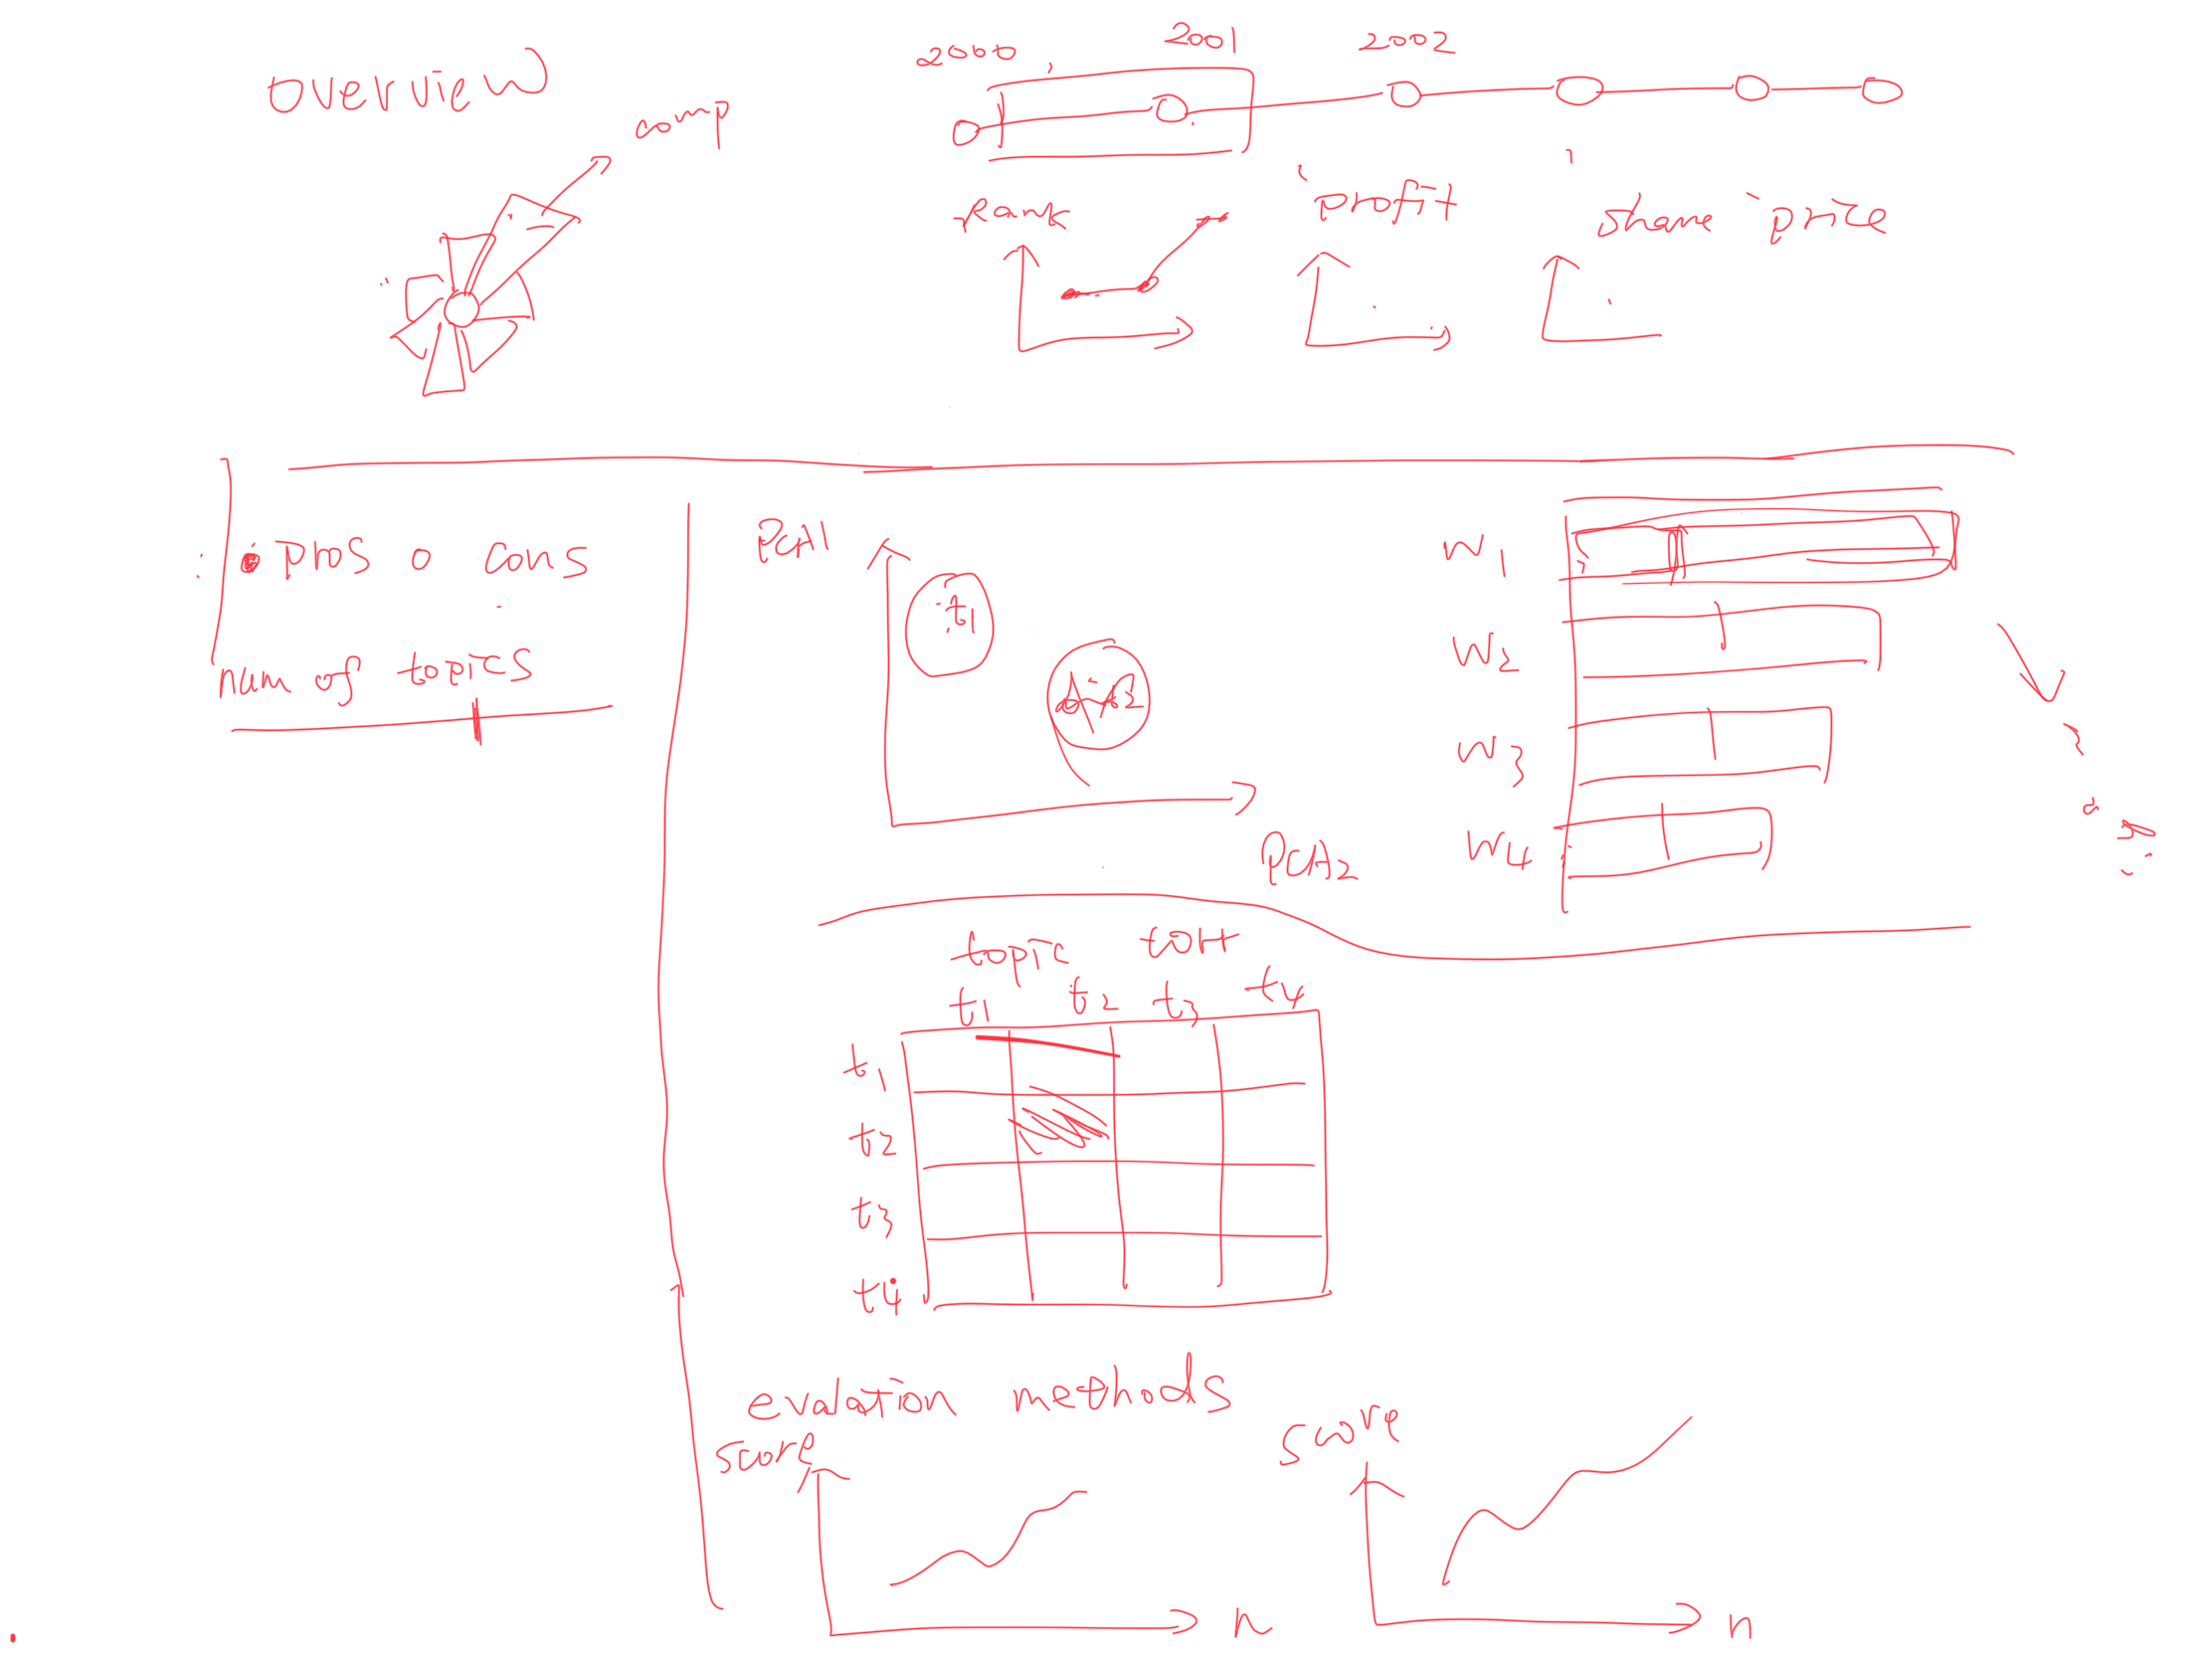 overview
comp
2000 2001 2002
Rank
profit
share price
pros o cons
num of topics
PCA1
t1
PCA2
w1
w2
w3
w4
topic corr
t1 t2 t3 t4
t1
t2
t3
t4
evalation methods
score
n
score
n